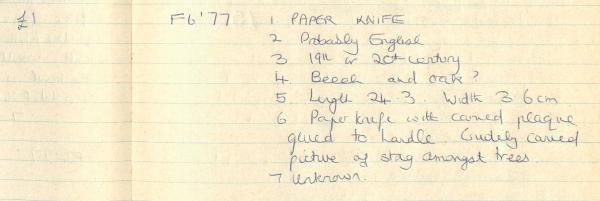 £1 F6'77 1 PAPER KNIFE
2 Probably English
3 19th or 20th century
4. Beech and oak?
5. Length 24.3. Width 3.6cm
6 Paper knife with carved plaque
glued to handle. Crudely carved
picture of stag amongst trees.
7 Unknown.